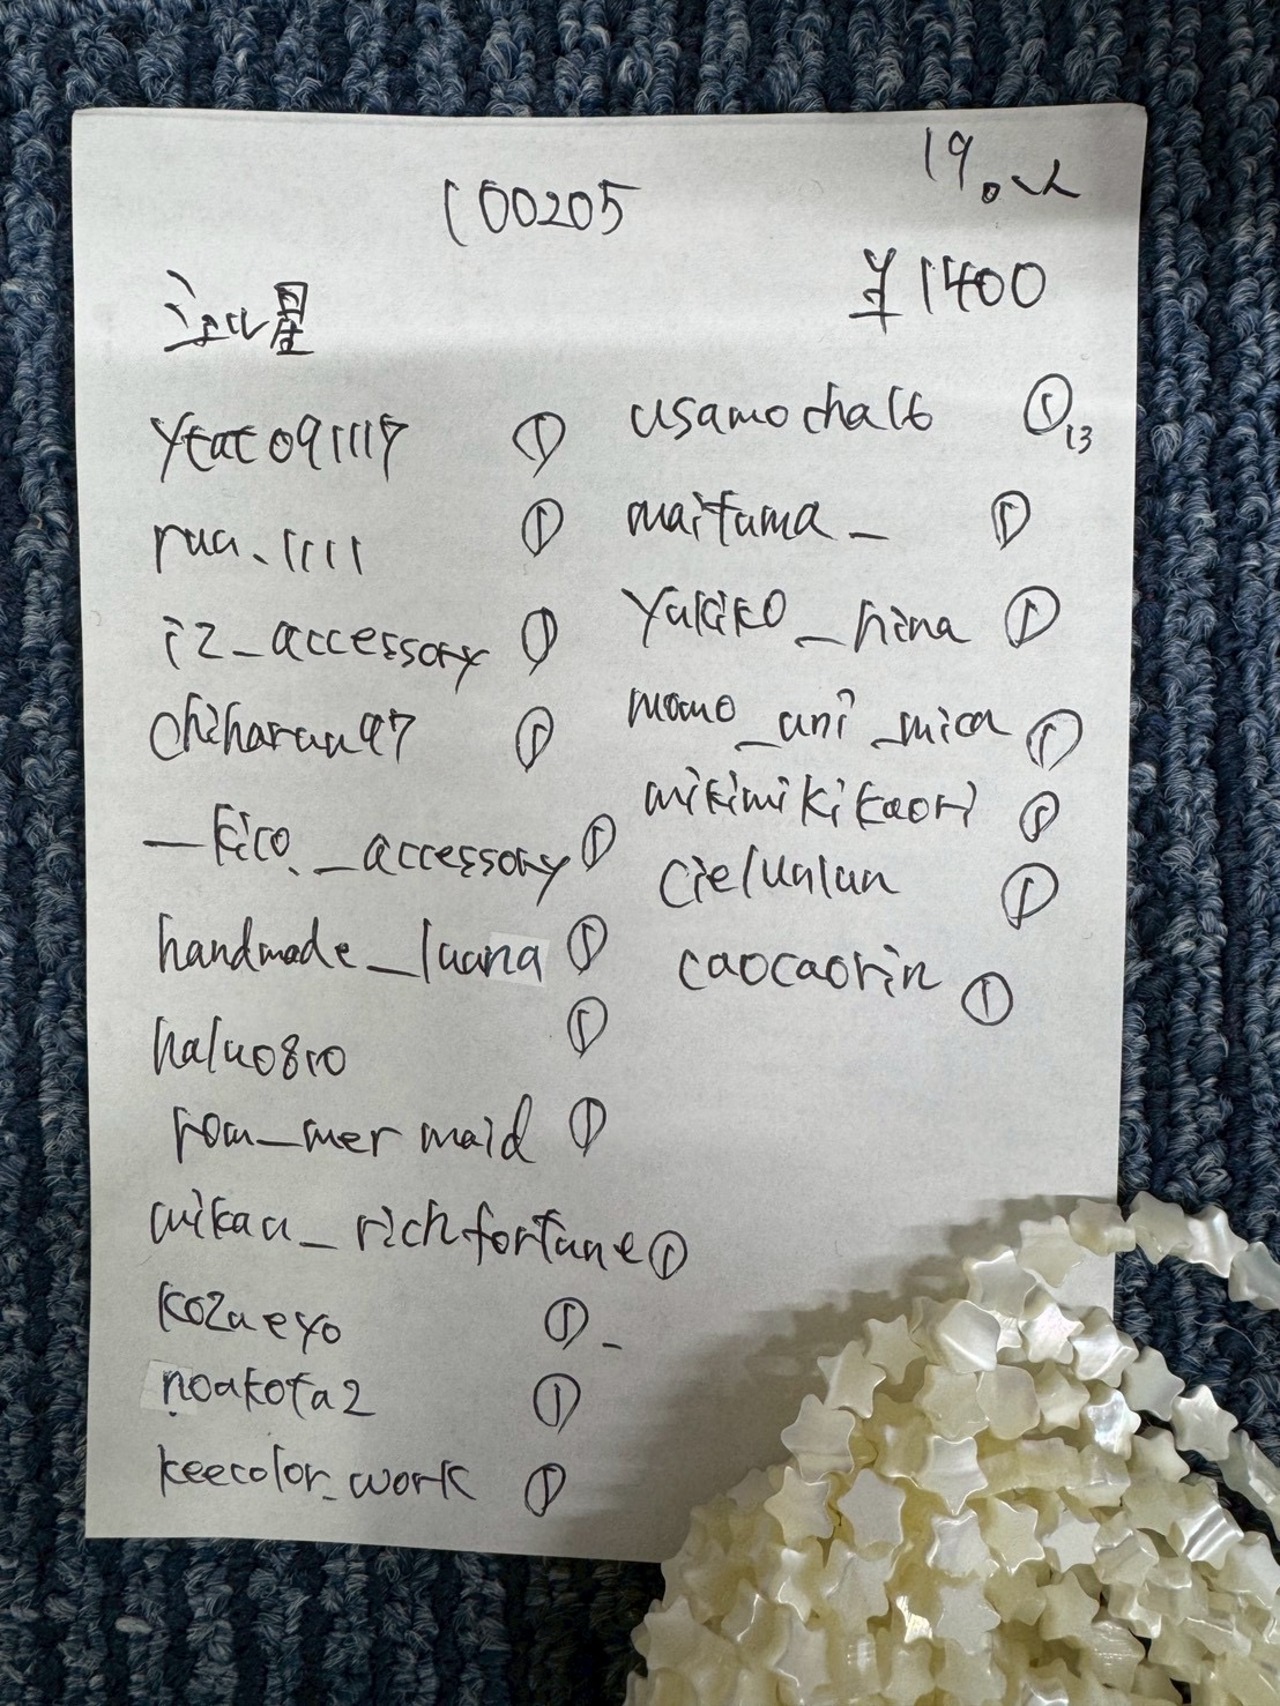 100205
19。しん
¥1400
シェル星
ytato91117 ①
rua.1111 ①
iz_accessory ①
chiharuu97 ①
_kico._accessory ①
handmade_luana ①
halu0810 ①
rom_mermaid ①
mikan_richfortune ①
kozueyo ①
noakota2 ①
keecolor_work ①
usamocha16 ①13
maifuma_ ①
yukiko_hina ①
momo_uni_mica ①
mikimikikaori ①
cielunluu ①
caocaorin ①